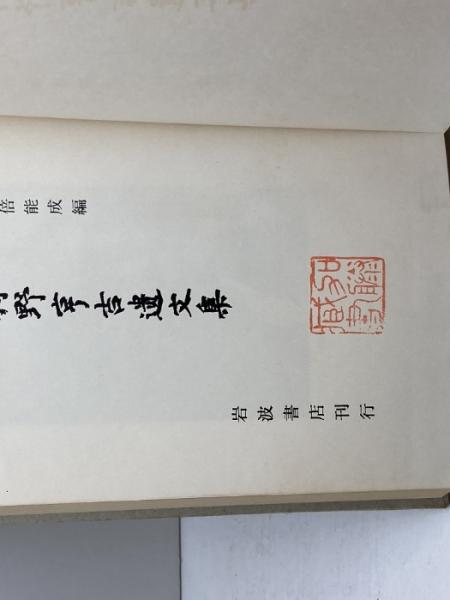 倍能成編
野亨吉遺文集
岩波書店刊行